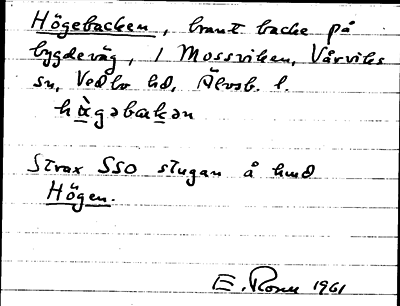 Högebacken, brant backe på
bygdeväg, / Mossviken, Vårviks
sn, Vedbo hd, Älvsb. l.
hὰgəbakən
Strax SSO stugan å hmd
Högen.
E. Rosen 1961